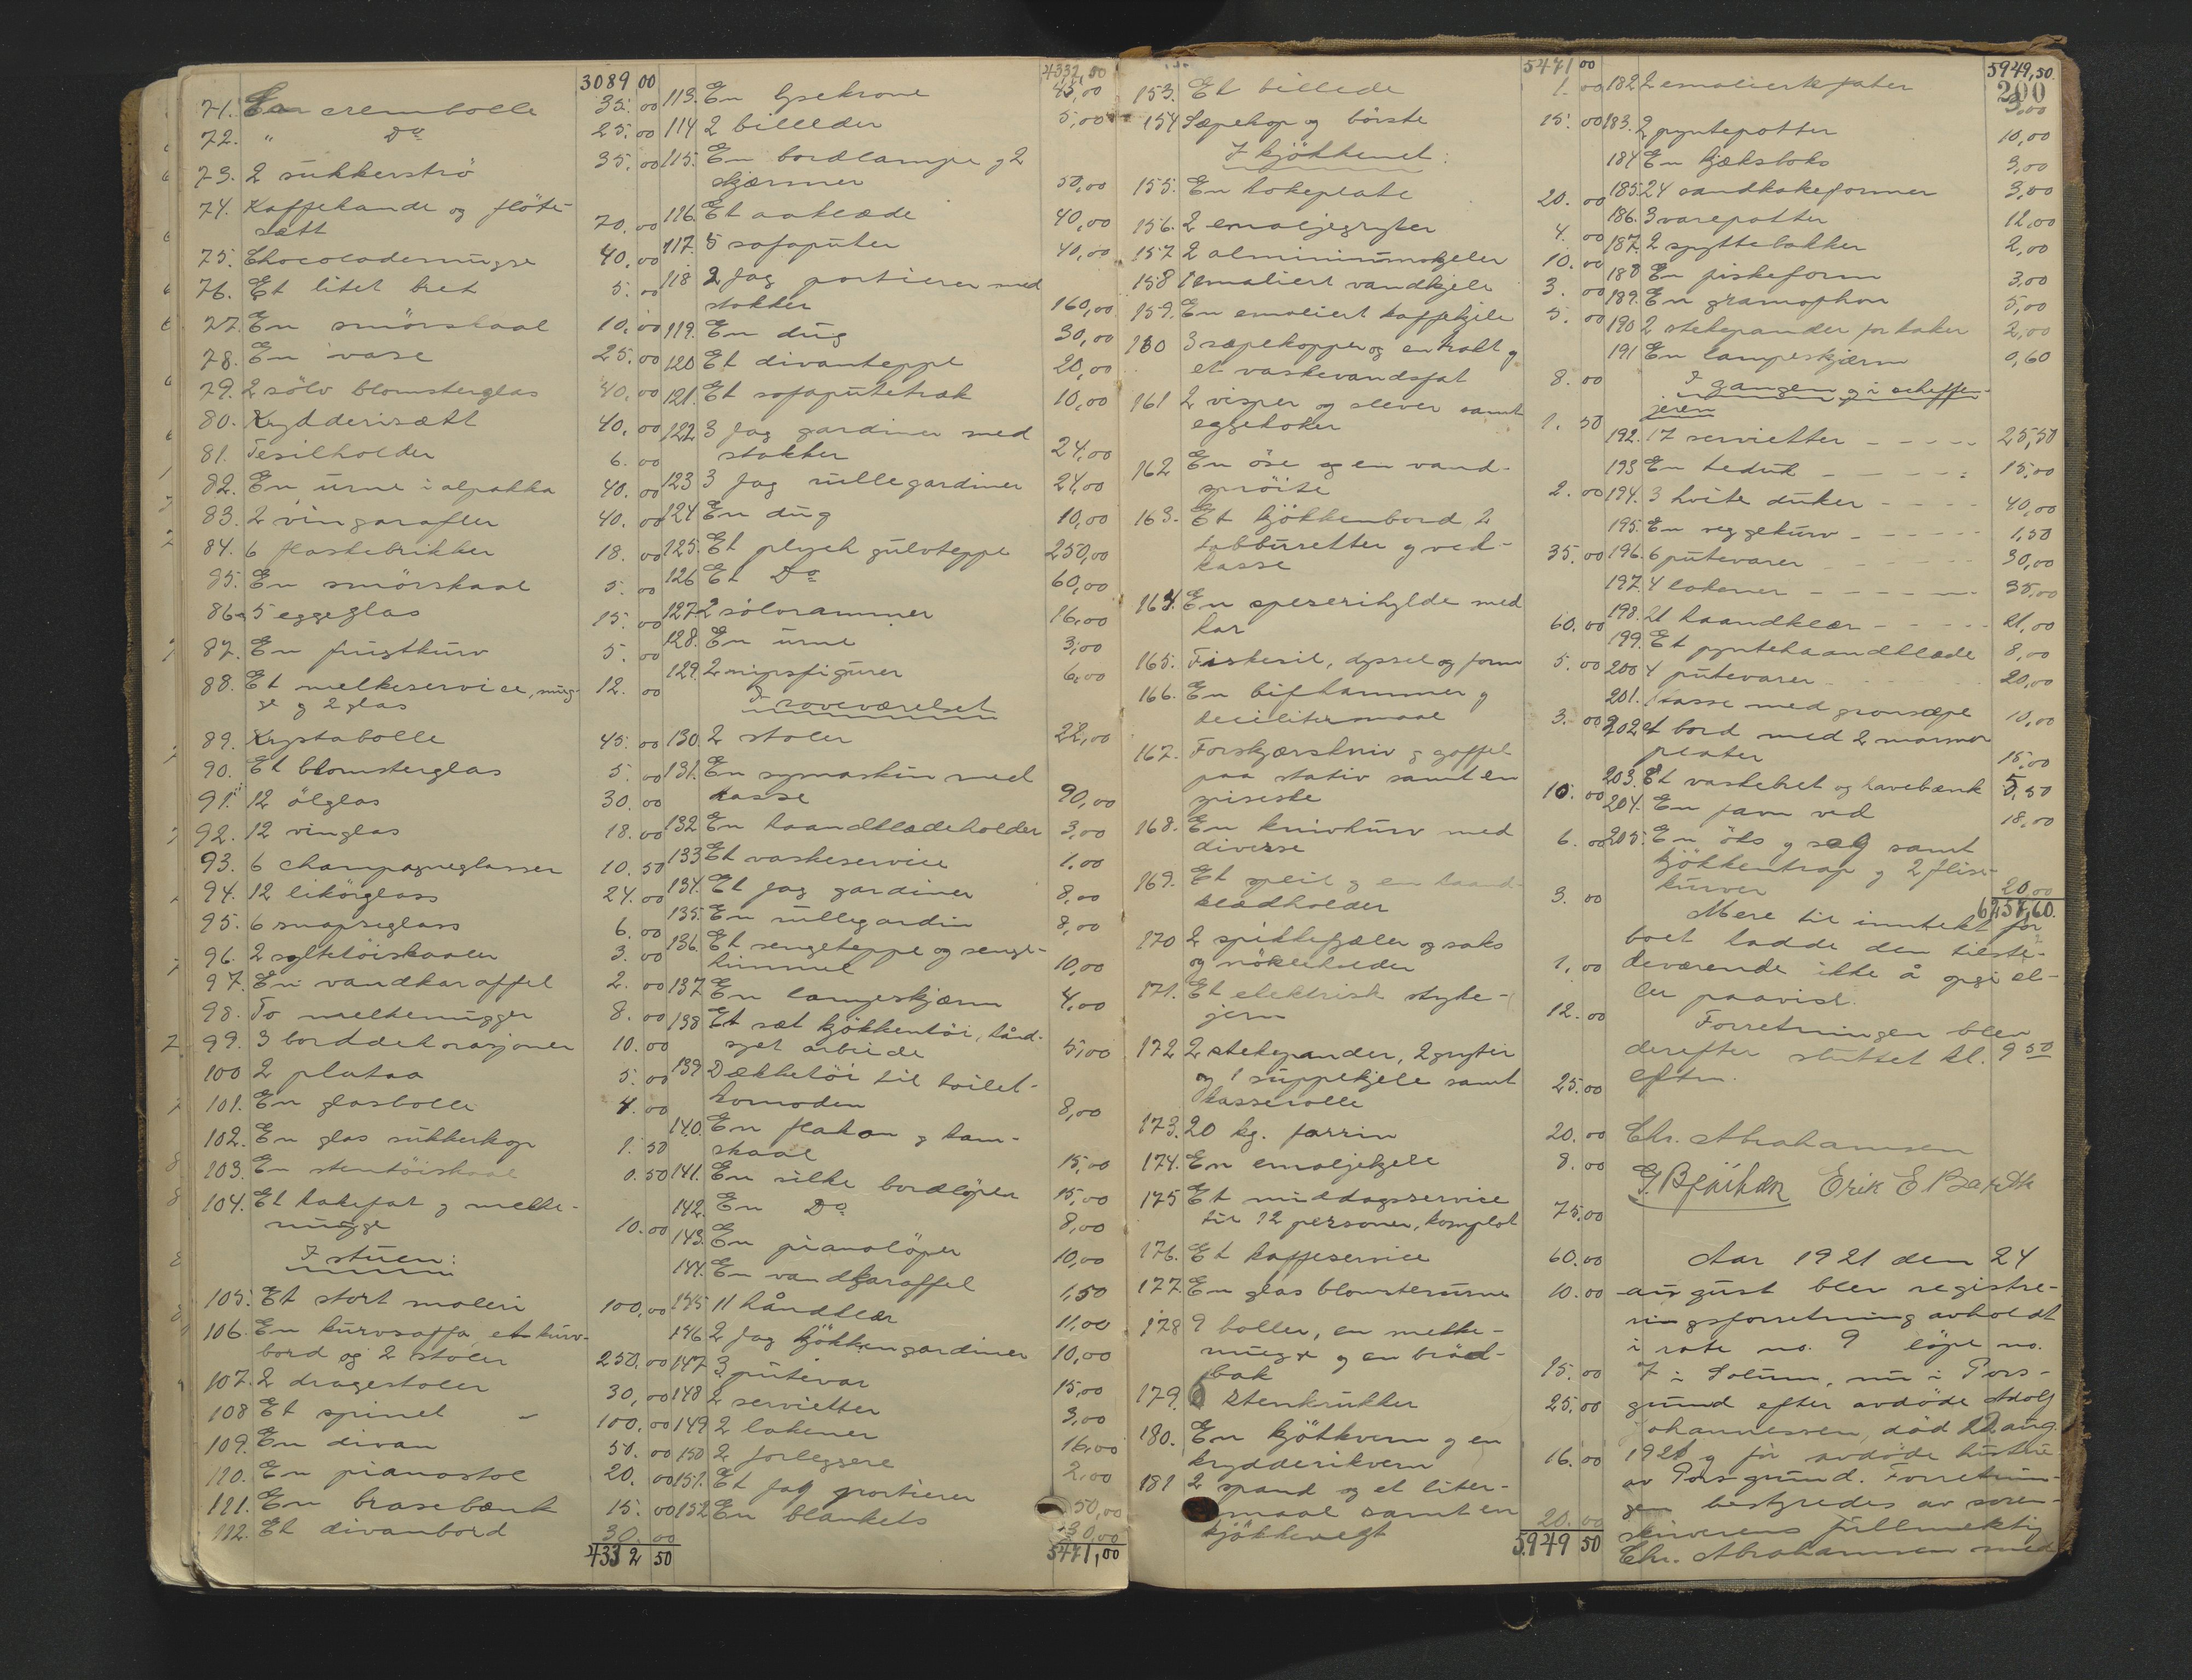 3089 00
71. En crembolle 35. 00
72. " Do 25. 00
73. 2 sukkerströ 35. 00
74. Kaffekande og flöte-
sætt 70. 00
75. Chocolademugge 40. 00
76. Et litet bret 5. 00
77. En smörskaal 10. 00
78. En vase 25. 00
79. 2 sölv blomsterglas 40. 00
80. Krydderisætt 40. 00
81. Tesilholder 6. 00
82. En urne i alpakka 40. 00
83. 2 vinkarafler 40. 00
84. 6 flaskebrikker 18. 00
85. En smörskaal 5. 00
86. 5 eggeglas 15. 00
87. En frugtkurv 5. 00
88. Et melkeservice, mug-
ge og 2 glas 12. 00
89. Krystabolle 45. 00
90. Et blomsterglas 5. 00
91. 12 ölglas 30. 00
92. 12 vinglas 18. 00
93. 6 champagneglasser 10. 50
94. 12 likörglass 24. 00
95. 6 snapseglass 6. 00
96. 2 syltetöiskaaler 3. 00
97. En vandkaraffel 2. 00
98. To melkemugger 8. 00
99. 3 borddekorasjoner 10. 00
100 2 plataa 5. 00
101. En glasbolle 4. 00
102. En glas sukkerkop 1. 50
103. En stentöiskaal 0. 50
104. Et kakefat og melke-
mugge 10. 00
I stuen:
105. Et stort maleri 100,00
106. En kurvsoffa, et kurv-
bord og 2 stoler 250. 00
107. 2 dragestoler 30, 00
108 Et spinet 100. 00
109. En divan 50. 00
110. En pianostol 20. 00
111. En brasebænk 15. 00
112. Et divanbord 30. 00
4332 50
4332,50
113. En lysekrone 45,00
114 2 billeder 5,00
115. En bordlampe og 2
skjærmer 50,00
116. Et aaklæde 40,00
117. 5 sofaputer 40,00
118 2 fag portierer med
stokker 160,00
119. En dug 30,00
120 Et divanteppe 20,00
121. Et sofaputetræk 10,00
122 3 fag gardiner med
stokker 24,00
123 3 fag rullegardiner 24,00
124 En dug 10,00
125. Et plysch gulvteppe 250,00
126 Et Do 60,00
127. 2 sölvrammer 16,00
128. En urne 3,00
129. 2 nipsfigurer 6,00
I soveværelset
130. 2 stoler 22,00
131. En symaskin med
kasse 90,00
132 En haandklædeholder 3,00
133 Et vaskeservice 1.00
134. Et fag gardiner 8,00
135. En rullegardin 8,00
136. Et sengeteppe og senge-
himmel 10,00
137 En lampeskjærm 4,00
138 Et sæt kjökkentöi, hånd-
syet arbeide 5,00
139 Dækketöi til toilet-
komoden 8,00
140. En flakon og kam-
skaal 15,00
141. En silke bordlöper 15,00
142. En Do 8,00
143. En pianolöper 10,00
144. En vandkaraffel 1,50
145 11 håndklær 11,00
146 2 fag kjökkengardiner 10,00
147 3 putevar 15,00
148 2 servietter 3,00
149 2 lakener 16,00
150 2 forleggere 2,00
151. Et fag portierer 50,00
152 En blankets 30,00
5471,00
5471 00
153. Et billede 1. 00
154 Sæpekop og börste 15. 00
I kjökkenet:
155. En kokeplate 20. 00
156. 2 emaljegryter 4. 00
157 2 alminiumskjeler 10. 00
158 1 emaliert vandkjele 3. 00
159. En emaliert kaffekjele 5. 00
160 3 sæpekopper og en trakt og
et vaskevandsfat 8. 00
161 2 visper og slever samt
eggekoker 1. 50
162 En öse og en vand-
spröite 2. 00
163. Et kjökkenbord 2
tabburetter og ved-
kasse 35. 00
164. En speserihylde med
kar 60. 00
165. Fiskesil, dyssel og form 5. 00
166. En bifhammer og
decilitermaal 3. 00
167. Forskjærskniv og gaffel
paa stativ samt en
spiseske 10. 00
168. En knivkurv med
diverse 6. 00
169. Et speil og en haand-
klædholder 3. 00
170 2 spikkefjæler og saks
og nökleholder 1. 00
171. Et elektrisk stryke-
jern 12. 00
172 2 stekepander, 2 gryter
og 1 suppekjele samt
kasserolle 25. 00
173. 20 kg. farrin 20. 00
174. En emaljekjele 8. 00
175 Et middagsservice
til 12 personer, komplet 75.00
176. Et kaffeservice 60.00
177. En glas blomsterurne 10. 00
178 9 boller, en melke-
mugge og en bröd-
bak 15. 00
179. 6 stenkrukker 25. 00
180. En kjötkvern og en
krydderikvern 16. 00
181 2 spand og et liter-
maal samt en
kjökkenvegt 20. 00
5949 50
5949,50.
200
182 2 emalierte fater 3,00
183. 2 pyntepotter 10,00
184 En kjæksboks 3,00
185 24 sandkakeformer 3,00
186. 3 varepotter 12,00
187. 2 spyttebakker 2,00
188 En fiskeform 3,00
189. En gramophon 5,00
190 2 stekepander for kaker 2,00
191 En lampeskjærm 0,60
I gangen og i scheffen-
jeren
192. 17 servietter - - - - - 25,50
193 En teduk - - - - : 15,00
194. 3 hvite duker - - - - 40,00
195. En veggekurv - - - - - 1,50
196. 6 putevarer - - - - - 30,00
197. 4 lakener - - - - - 35,00
198. 21 haandklær - - - - - 21,00
199. Et pyntehaandklæde 8,00
200 4 putevarer 20,00
201. 1 kasse med gronsæpe 10,00
202 et bord med 2 marmor
plater 15,00
203. Et vaskebret og lavebænk 5,50
204. En favn ved 18,00
205. En öks og sag samt
kjökkentrap og 2 flise-
kurver 20,00
6257,60.
Mere til inntekt for
boet hadde den tilste-
deværende ikke å opgi el-
ler paavise.
Forretningen blev
derefter sluttet kl. 9 50
eftm.
Chr. Abrahamsen
Erik E Barth
Aar 1921 den 24
august blev registre-
ringsforretning avholdt
i rote no. 9 löpe no.
7 i Solum, nu i Pors-
grund efter avdöde Adolf
Johannessen, död 22. aug.
1921 og för avdöde hustru
av Porsgrund. Forretnin-
gen bestyredes av soren-
skriverens fullmektig
Chr. Abrahamsen med